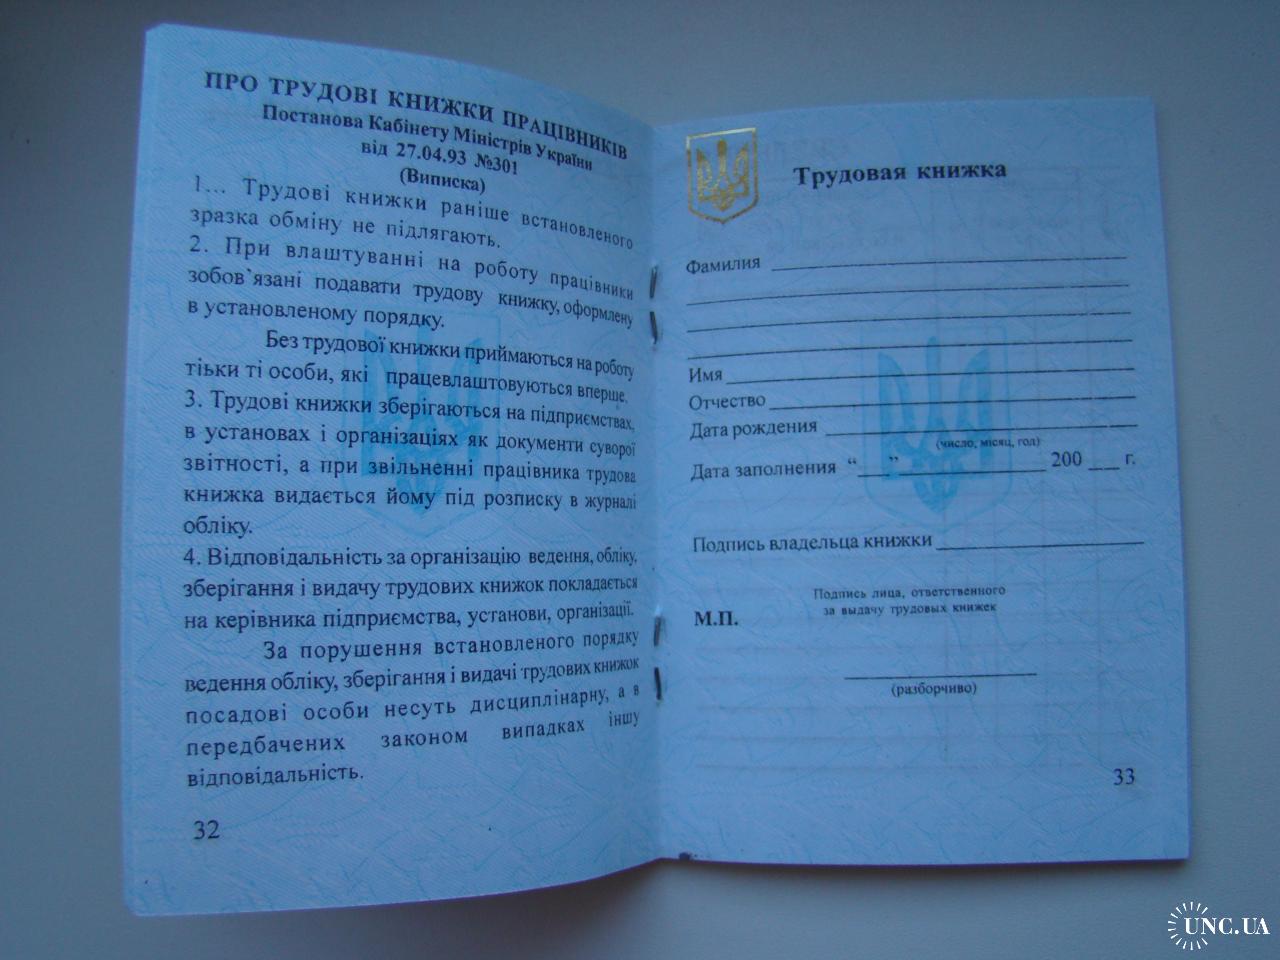 ПРО ТРУДОВІ КНИЖКИ ПРАЦІВНИКІВ
Постанова Кабінету Міністрів України
від 27.04.93 №301
(Виписка)
1... Трудові книжки раніше встановленого
зразка обміну не підлягають.
2. При влаштуванні на роботу працівники
зобов'язані подавати трудову книжку, оформлену
в установленому порядку.
Без трудової книжки приймаються на роботу
тіьки ті особи, які працевлаштовуються вперше.
3. Трудові книжки зберігаються на підприємствах,
в установах і організаціях як документи суворої
звітності, а при звільненні працівника трудова
книжка видається йому під розписку в журналі
обліку.
4. Відповідальність за організацію ведення, обліку,
зберігання і видачу трудових книжок покладається
на керівника підприємства, установи, організації.
За порушення встановленого порядку
ведення обліку, зберігання і видачі трудових книжок
посадові особи несуть дисциплінарну, а в
передбачених законом випадках іншу
відповідальність.
32
Трудовая книжка
Фамилия
Имя
Отчество
Дата рождения
(число, місяц, год)
Дата заполнения “ ” 200 г.
Подпись владельца книжки
Подпись лица, ответственного
за выдачу трудовых книжек
М.П.
(разборчиво)
33
UNC.UA